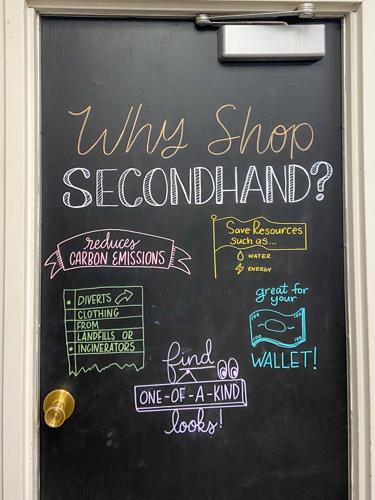 Why Shop
SECONDHAND?
reduces
CARBON EMISSIONS
Save Resources
such as...
WATER
ENERGY
DIVERTS
CLOTHING
FROM
LANDFILLS OR
INCINERATORS
great for
your
100 100
100 100
WALLET!
find
ONE-OF-A-KIND
looks!